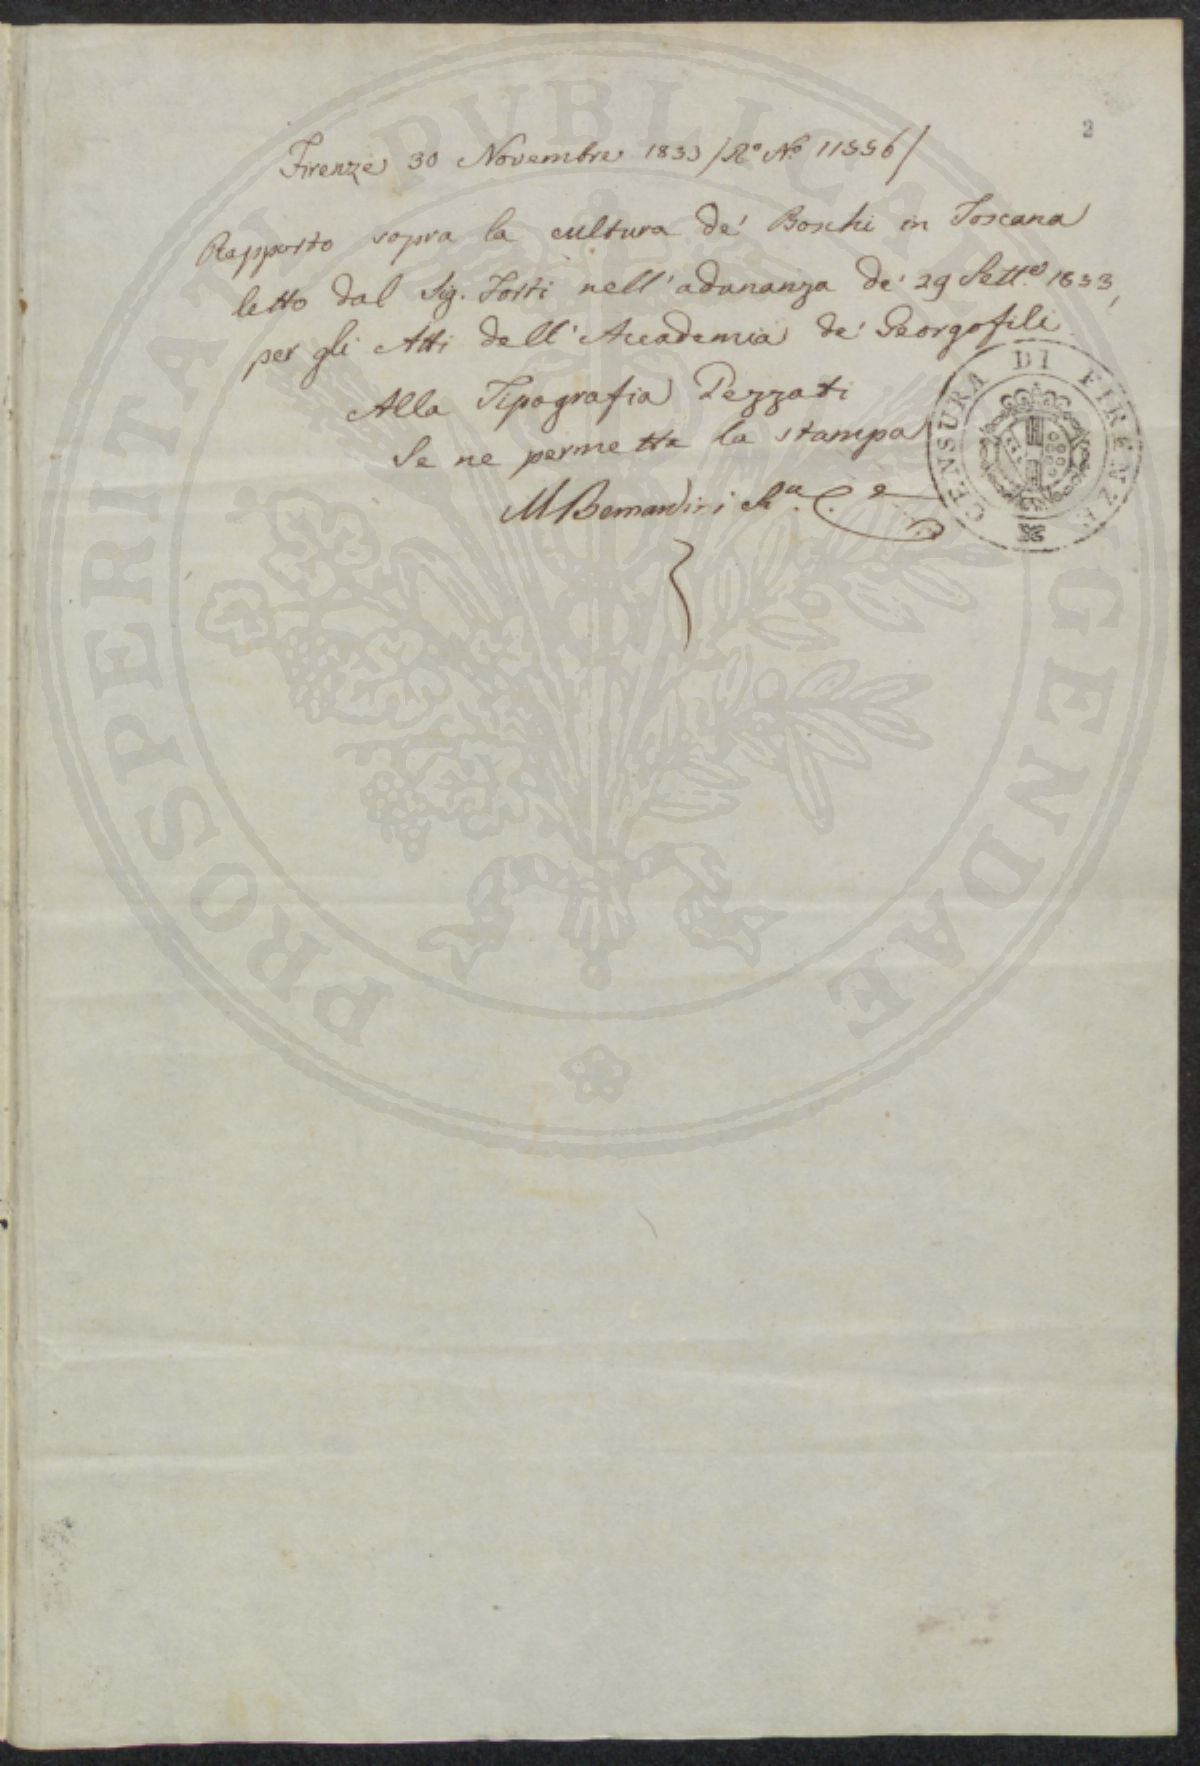 2
Firenze 30 Novembre 1833 / R.º N.º 11556 /
Rapporto sopra la cultura de' Boschi in Toscana
letto dal Sig. Forti nell'adunanza de' 29 Sett.e 1833,
per gli Atti dell'Accademia de' Georgofili
Alla Tipografia Pezzati
Se ne permette la stampa
M Bernardini
CENSURA DI FIRENZE
PROSPERITATI PVBLICAE AVGENDAE